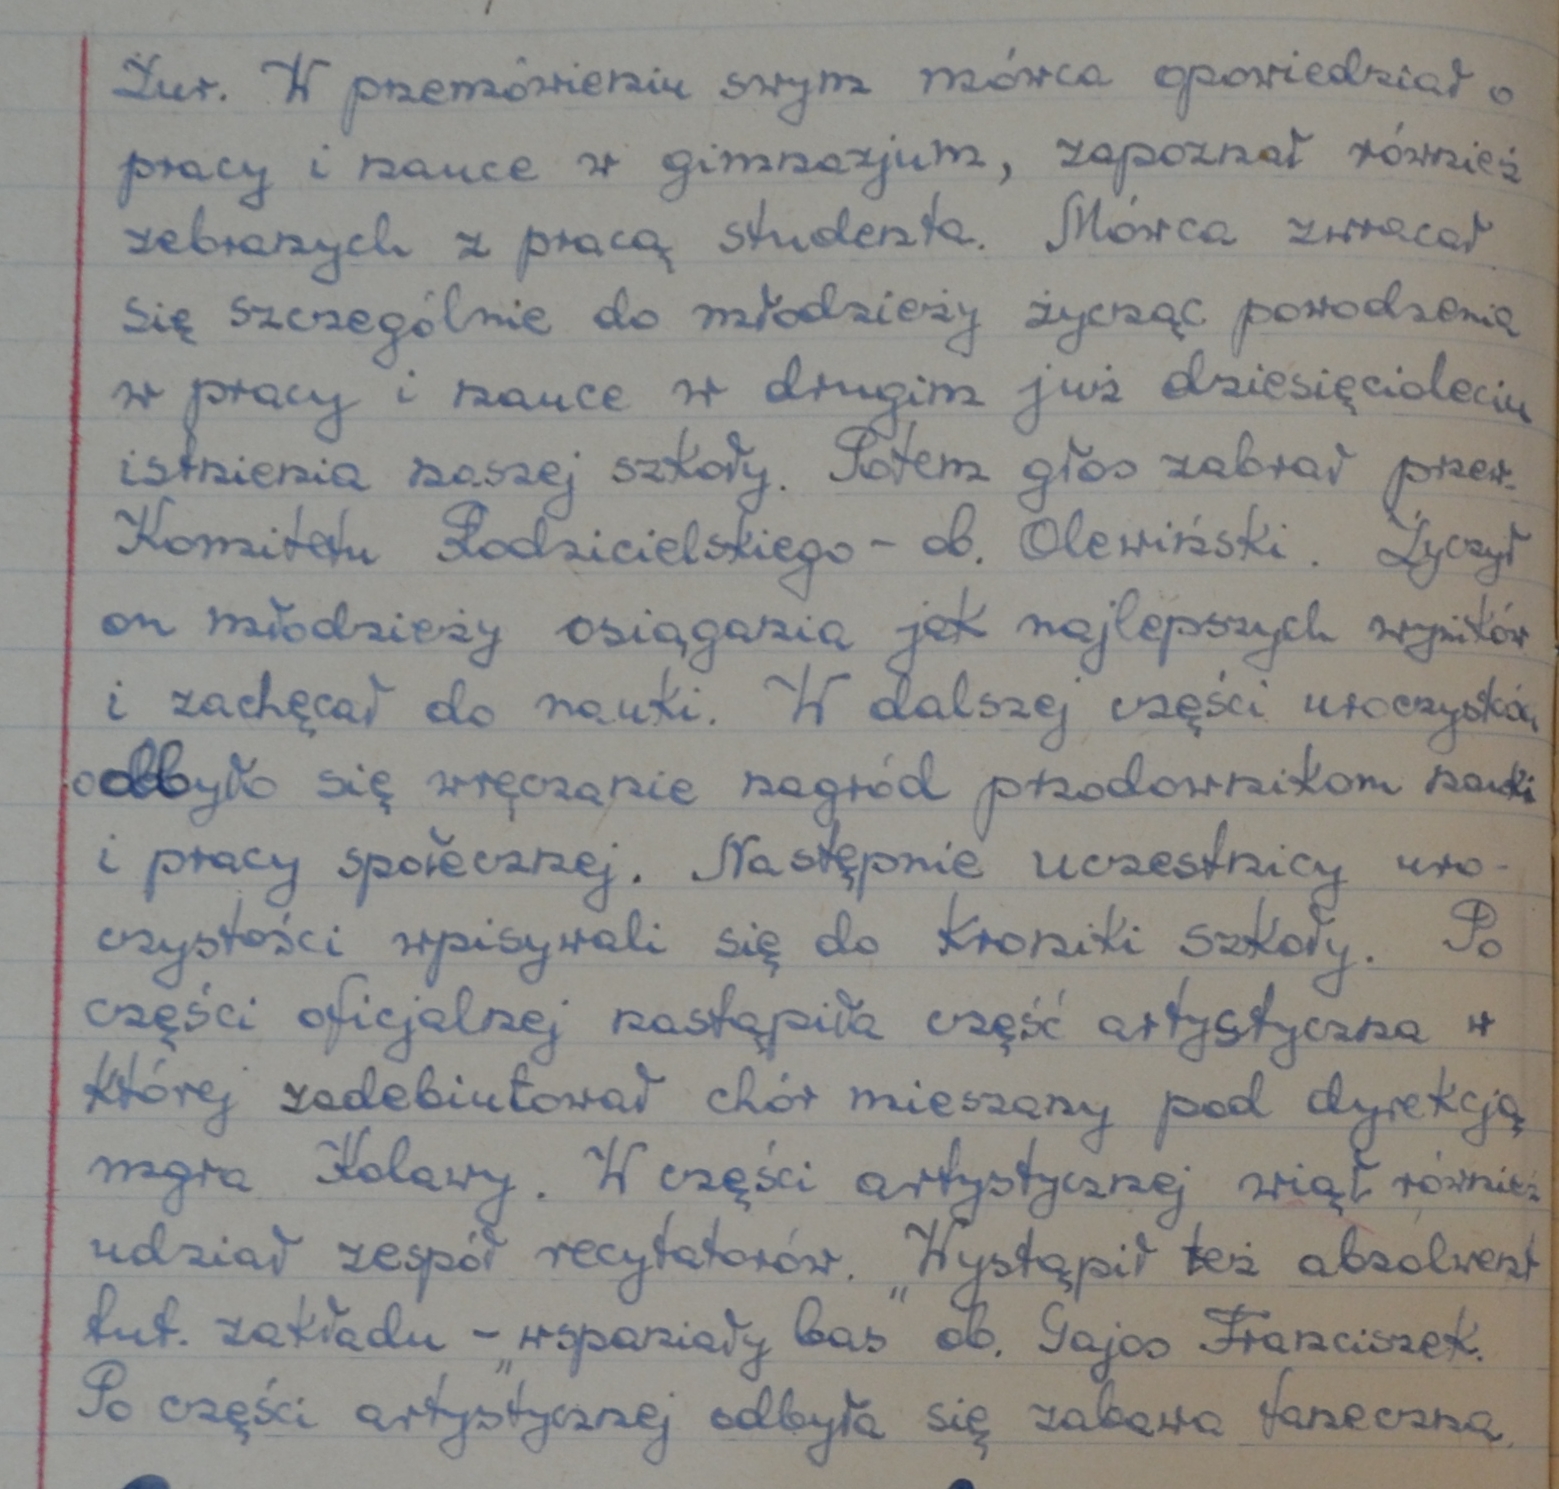 Żur. W przemówieniu swym mówca opowiedział o
pracy i nauce w gimnazjum, zapoznał również
zebranych z pracą studenta. Mówca zwracał
się szczególnie do młodzieży życząc powodzenia
w pracy i nauce w drugim już dziesięcioleciu
istnienia naszej szkoły. Potem głos zabrał przew.
Komitetu Rodzicielskiego - ob. Olewiński. Życzył
on młodzieży osiągania jak najlepszych wyników
i zachęcał do nauki. W dalszej części uroczystości
odbyło się wręczanie nagród przodownikom nauki
i pracy społecznej. Następnie uczestnicy uro-
czystości wpisywali się do kroniki szkoły. Po
części oficjalnej nastąpiła część artystyczna w
której zadebiutował chór mieszany pod dyrekcją
mgra Kolawy. W części artystycznej wiął również
udział zespół recytatorów. Wystąpił też absolwent
tut. zakładu - „wspaniały bas" ob. Gajos Franciszek.
Po części artystycznej odbyła się zabawa taneczna.